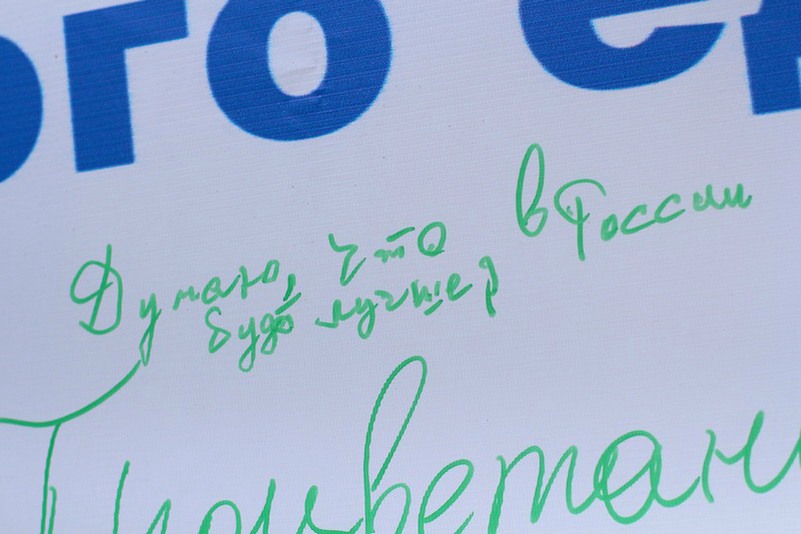 ого ед
Думаю, что в России
будет лучше,
Процветани